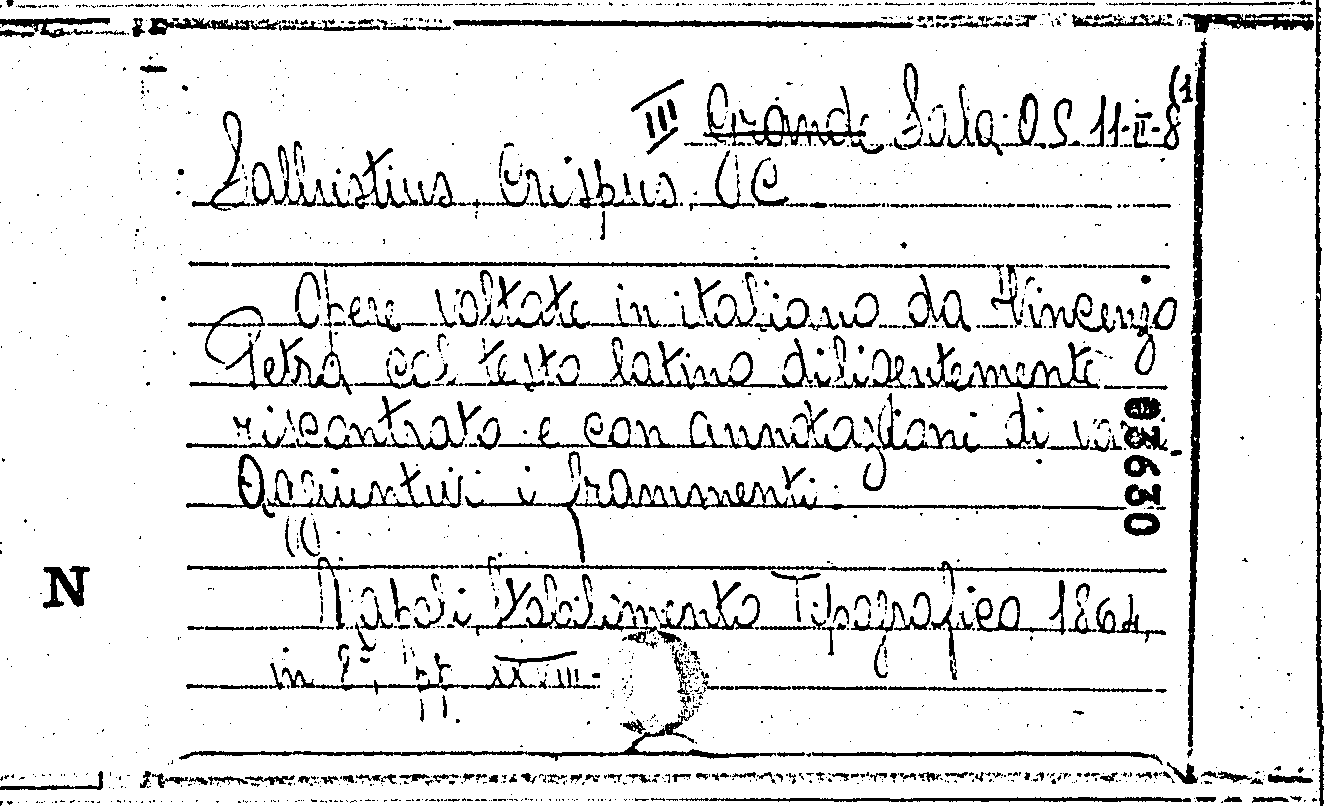 III Grande Sala O.S. 11-II-8(1
Sallustius Crispus, C.
Opere voltate in italiano da Vincenzo
Petra col testo latino diligentemente
riscontrato e con annotazioni di
Aggiuntivi i frammenti
Napoli, Stabilimento Tipografico, 1864,
in 8°, pp. XXVIII-
03630
N